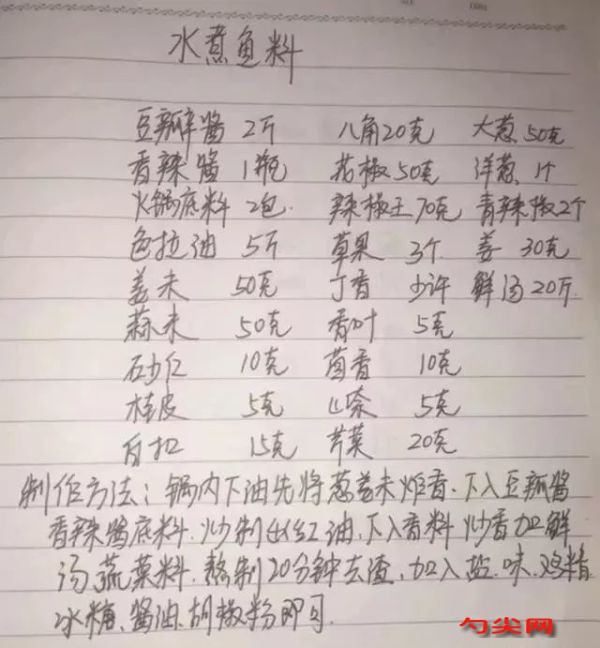 水煮鱼料
豆瓣酱 2斤 八角20克 大葱50克
香辣酱 1瓶 花椒50克 洋葱1个
火锅底料 2包. 辣椒王70克 青辣椒2个
色拉油 5斤 草果 3个 姜 30克
姜末 50克 丁香 少许 鲜汤20斤
蒜末 50克 香叶 5克
砂仁 10克 茴香 10克
桂皮 5克 山奈 5克
白扣 15克 芹菜 20克
制作方法:锅内下油先将葱姜末炸香.下入豆瓣酱
香辣酱底料.炒制成红油,下入香料炒香加鲜
汤蔬菜料.熬制20分钟去渣,加入盐.味.鸡精
冰糖、酱油.胡椒粉即可.
勺尖网